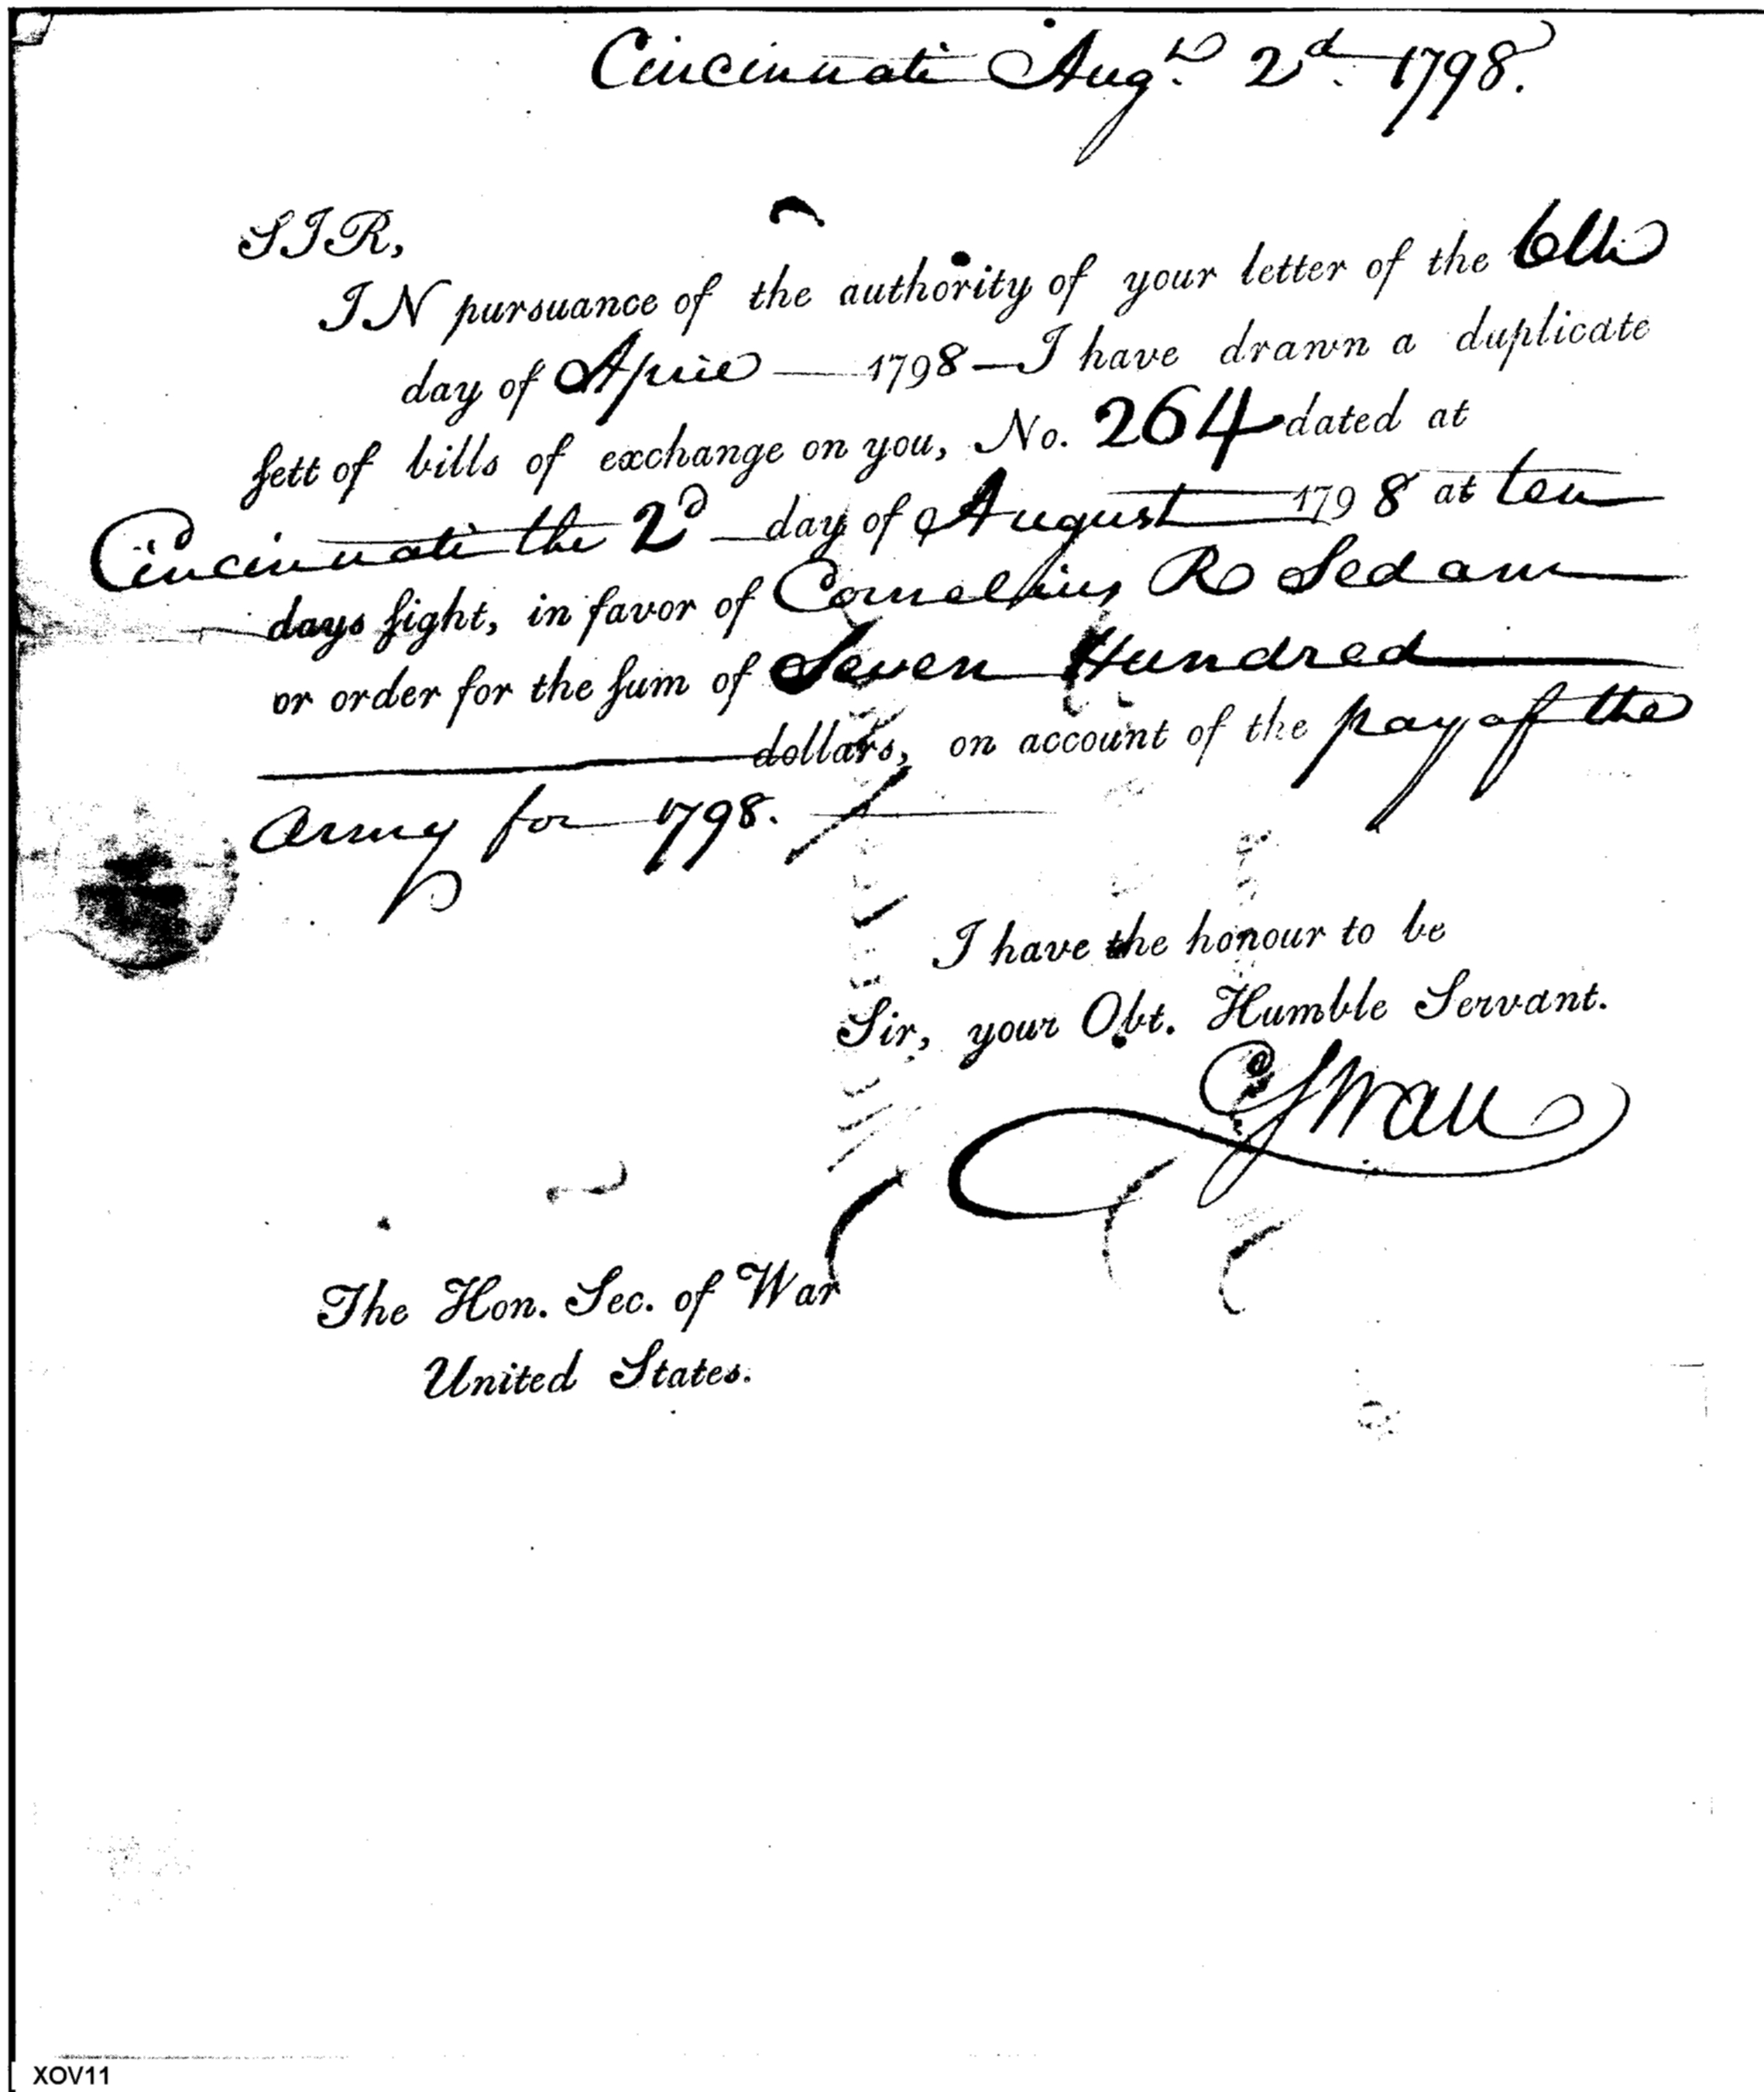 Cincinnati Augt. 2d. 1798.
SIR,
IN pursuance of the authority of your letter of the 6th
day of April — 1798 — I have drawn a duplicate
sett of bills of exchange on you, No. 264 dated at
Cincinnati the 2d day of August 1798 at ten
days sight, in favor of Cornelius R Sedam
or order for the sum of Seven Hundred
dollars, on account of the pay of the
Army for 1798.
I have the honour to be
Sir, your Obt. Humble Servant.
C Swan
The Hon. Sec. of War
United States.
XOV11